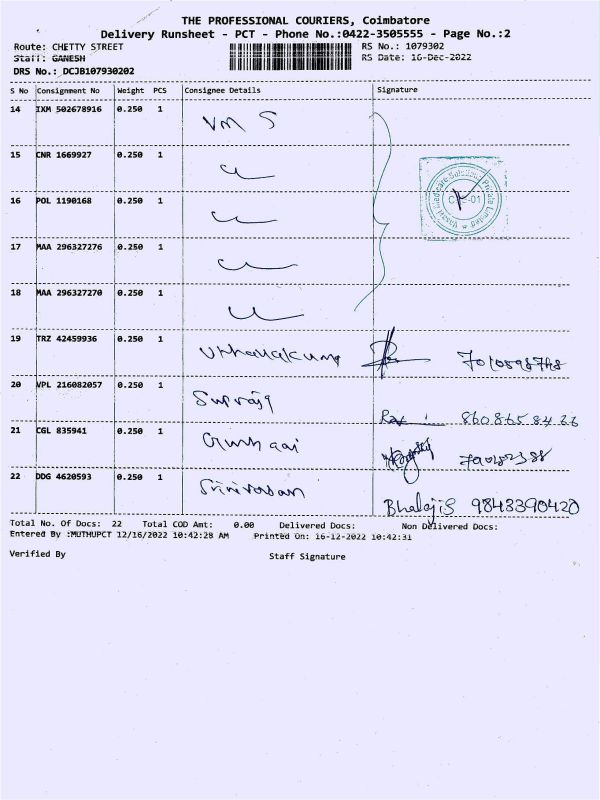 THE PROFESSIONAL COURIERS, Coimbatore
Delivery Runsheet - PCT - Phone No.:0422-3505555 - Page No.:2
Route: CHETTY STREET RS No.: 1079302
Staff: GANESH RS Date: 16-Dec-2022
DRS No.: DCJB107930202
S No Consignment No Weight PCS Consignee Details Signature
14 IXM 502678916 0.250 1 VM S
15 CNR 1669927 0.250 1
16 POL 1190168 0.250 1
17 MAA 296327276 0.250 1
18 MAA 296327270 0.250 1
19 TRZ 42459936 0.250 1
20 VPL 216082057 0.250 1
21 CGL 835941 0.250 1
22 DDG 4620593 0.250 1 Srinivasan Bhalaji S 9843390420
Total No. Of Docs: 22 Total COD Amt: 0.00 Delivered Docs: Non Delivered Docs:
Entered By :MUTHUPCT 12/16/2022 10:42:28 AM Printed On: 16-12-2022 10:42:31
Verified By Staff Signature